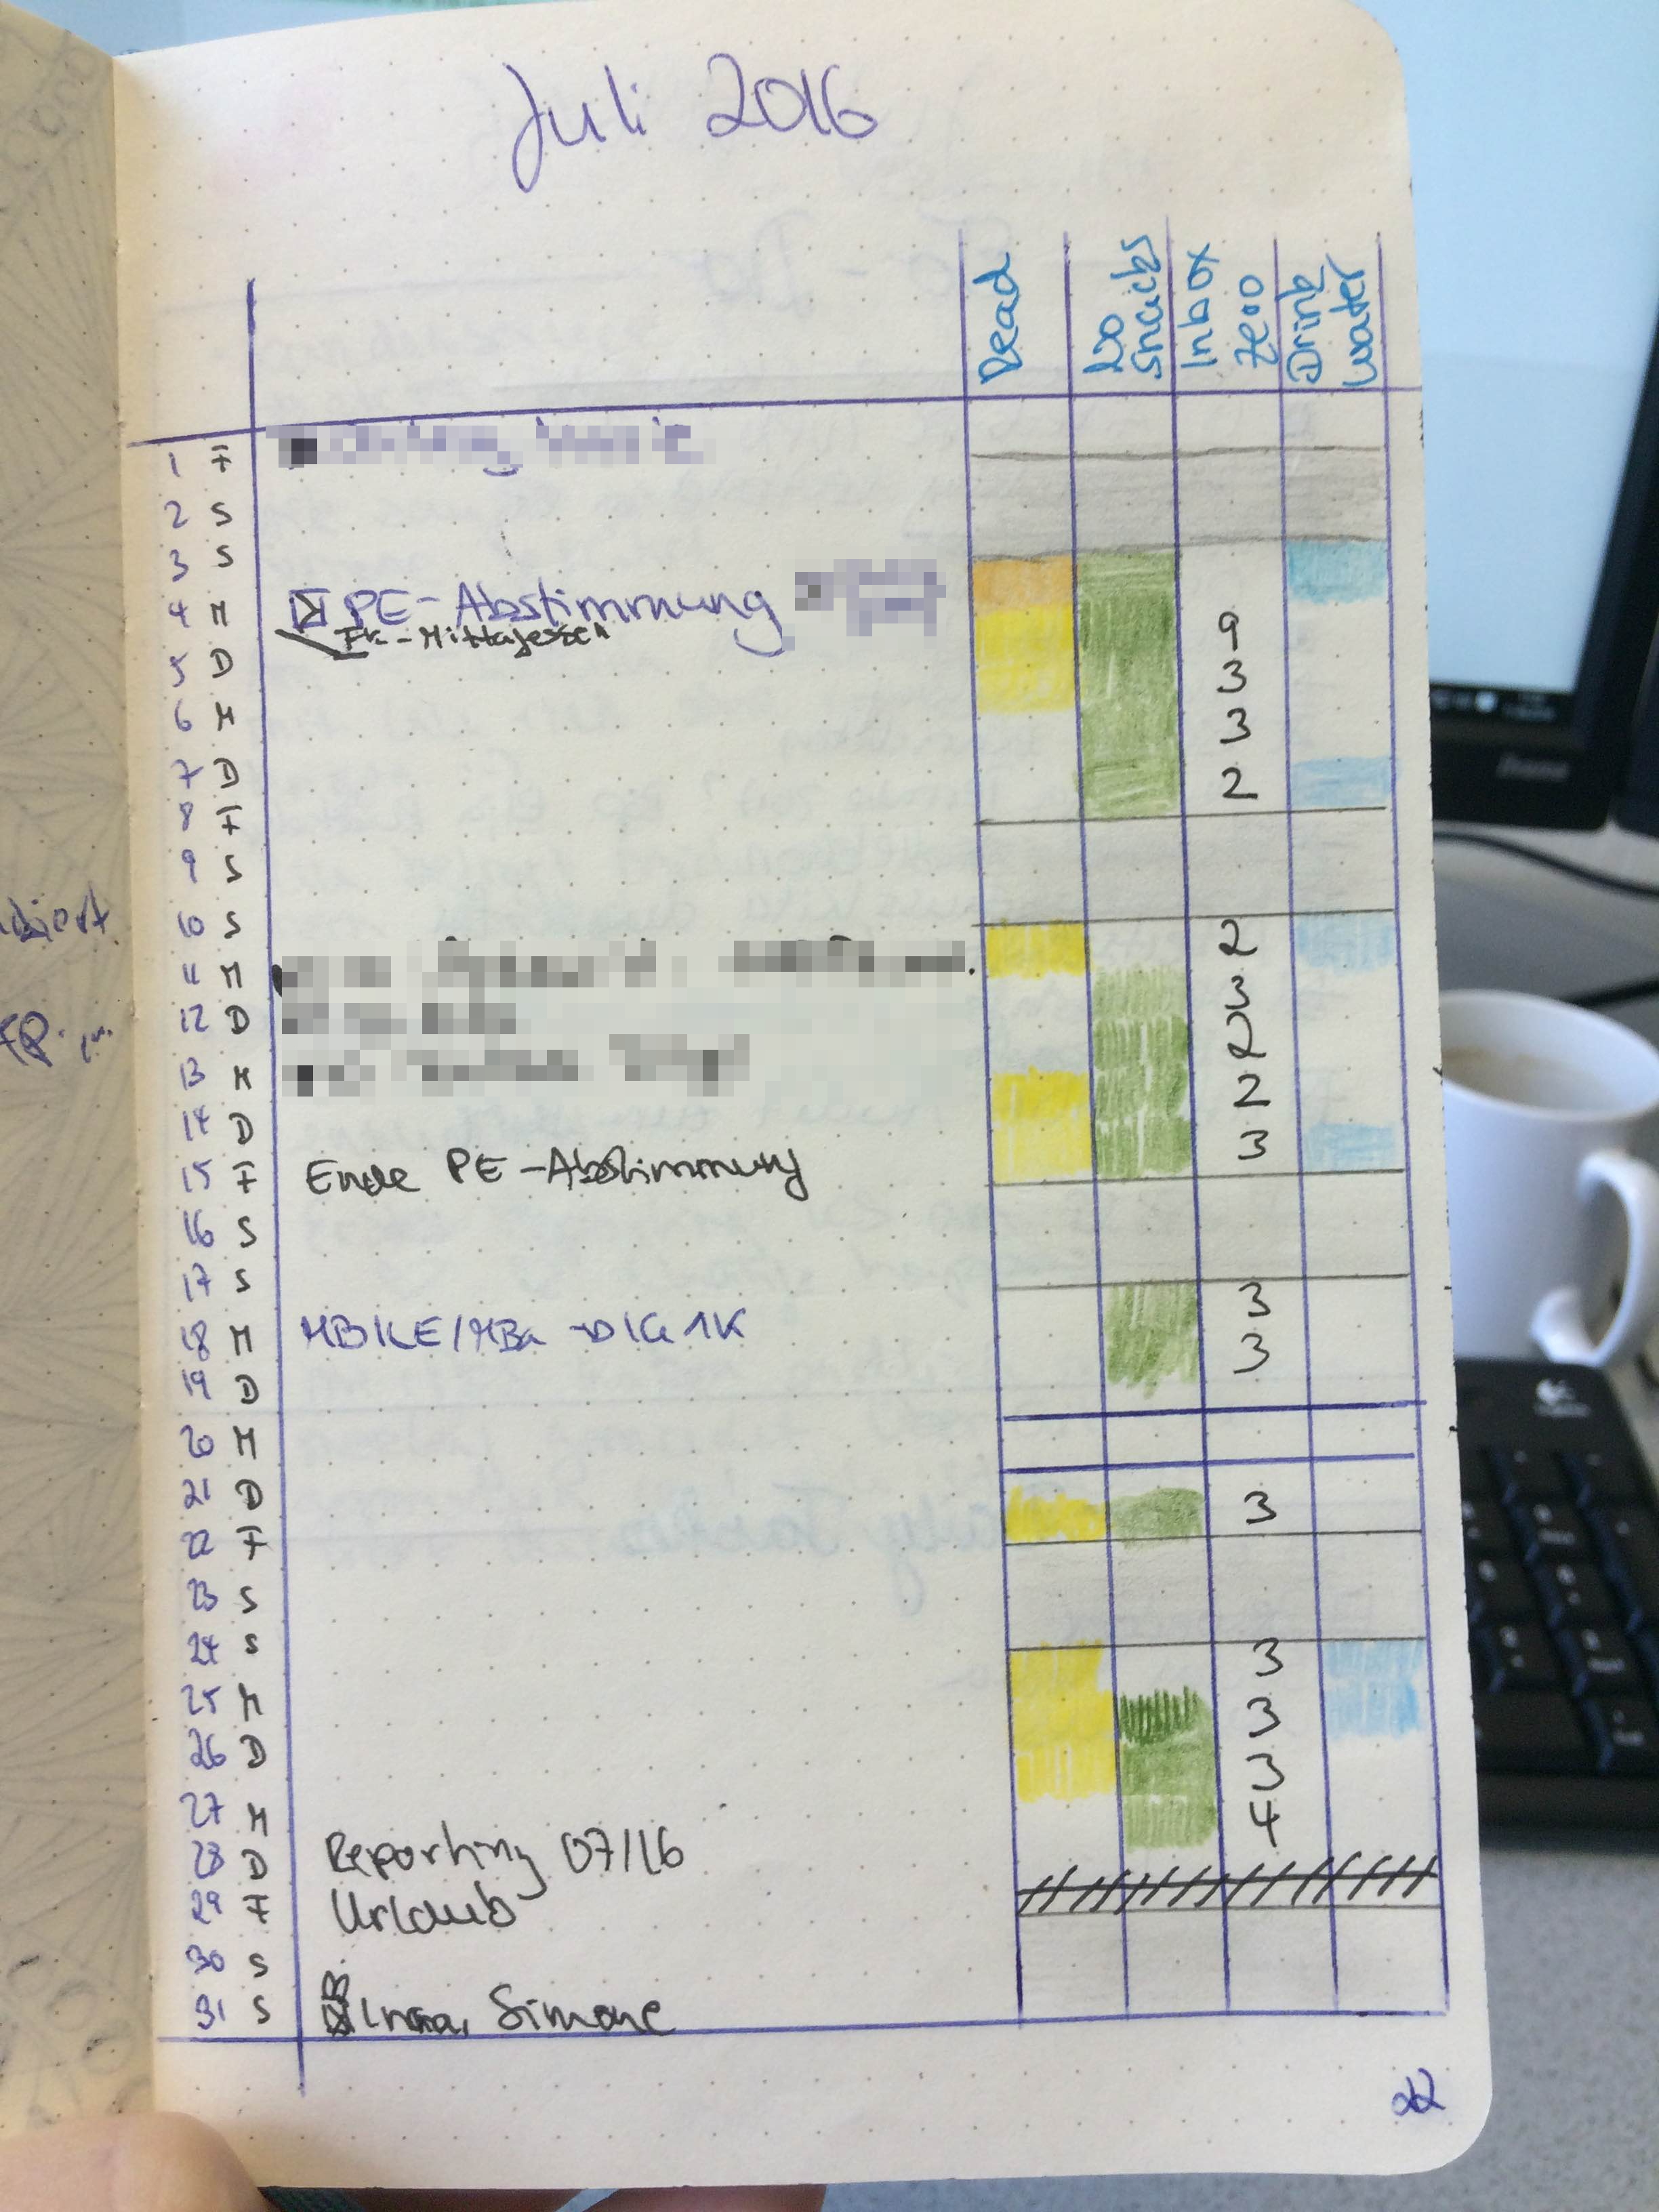 Juli 2016
Read
No snacks
Inbox zero
Drink water
1 F
2 S
3 S
4 M PE-Abstimmung
FK-Mittagessen
5 D
6 M 9
3
7 D 3
8 F 2
9 S
10 S
11 M 2
12 D 3
13 M 2
14 D 2
15 F Ende PE-Abstimmung 3
16 S
17 S
18 M 3
19 D 3
20 M
21 D
22 F 3
23 S
24 S
25 M 3
26 D 3
27 M 3
28 D Reporting 07/16 4
29 F Urlaub
30 S
31 S Simone
22